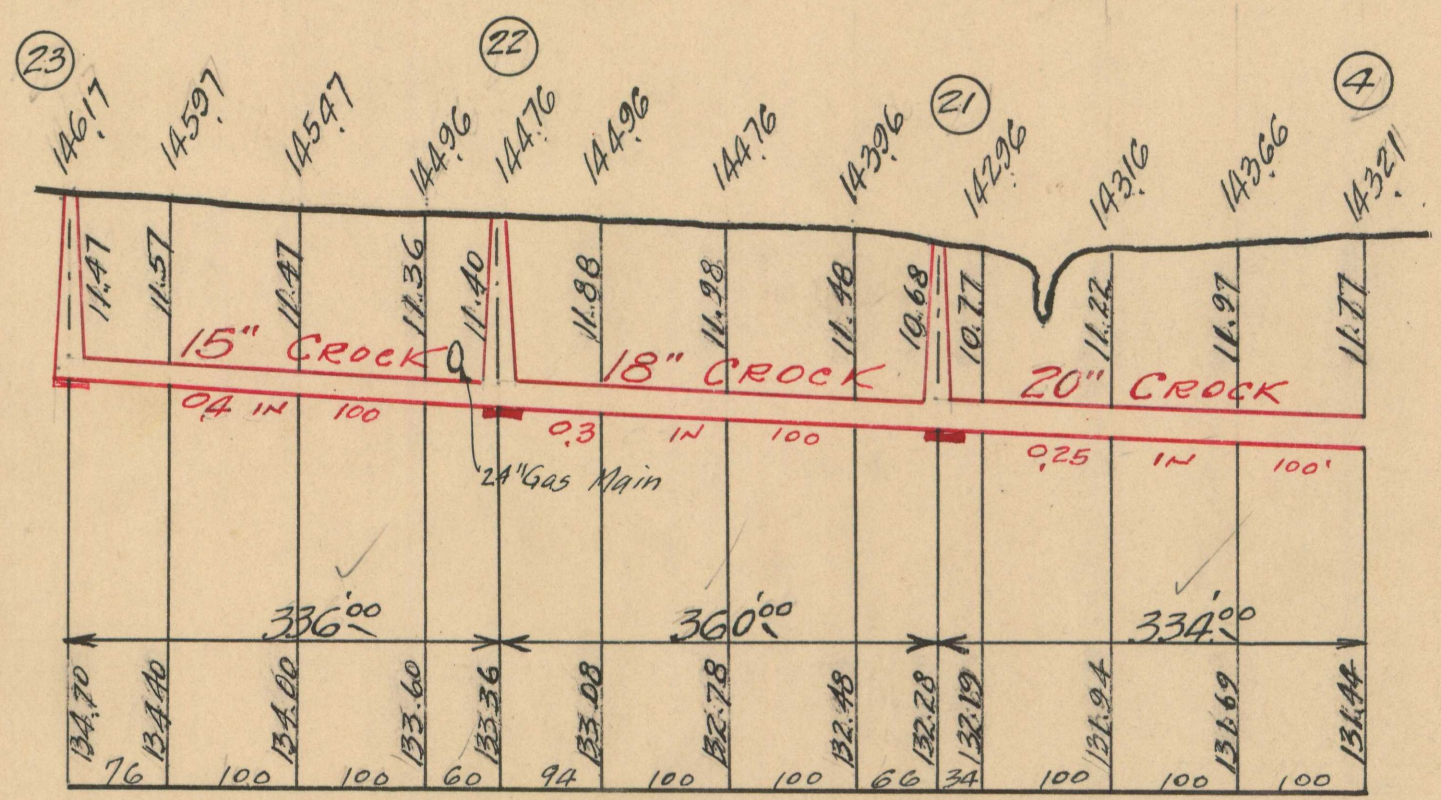 23
22
21
4
146.17
145.97
145.47
144.96
144.76
144.96
144.76
143.96
142.96
143.16
143.66
143.21
11.47
11.57
11.47
11.36
11.40
11.88
11.98
11.48
10.68
10.77
11.22
11.97
11.77
15" CROCK
18" CROCK
20" CROCK
0.4 IN 100
0.3 IN 100
0.25 IN 100'
24" Gas Main
336'.00
360'.00
334'.00
134.70
134.40
134.00
133.60
133.36
133.08
132.78
132.48
132.28
132.19
131.94
131.69
131.44
76 100 100 60 94 100 100 66 34 100 100 100